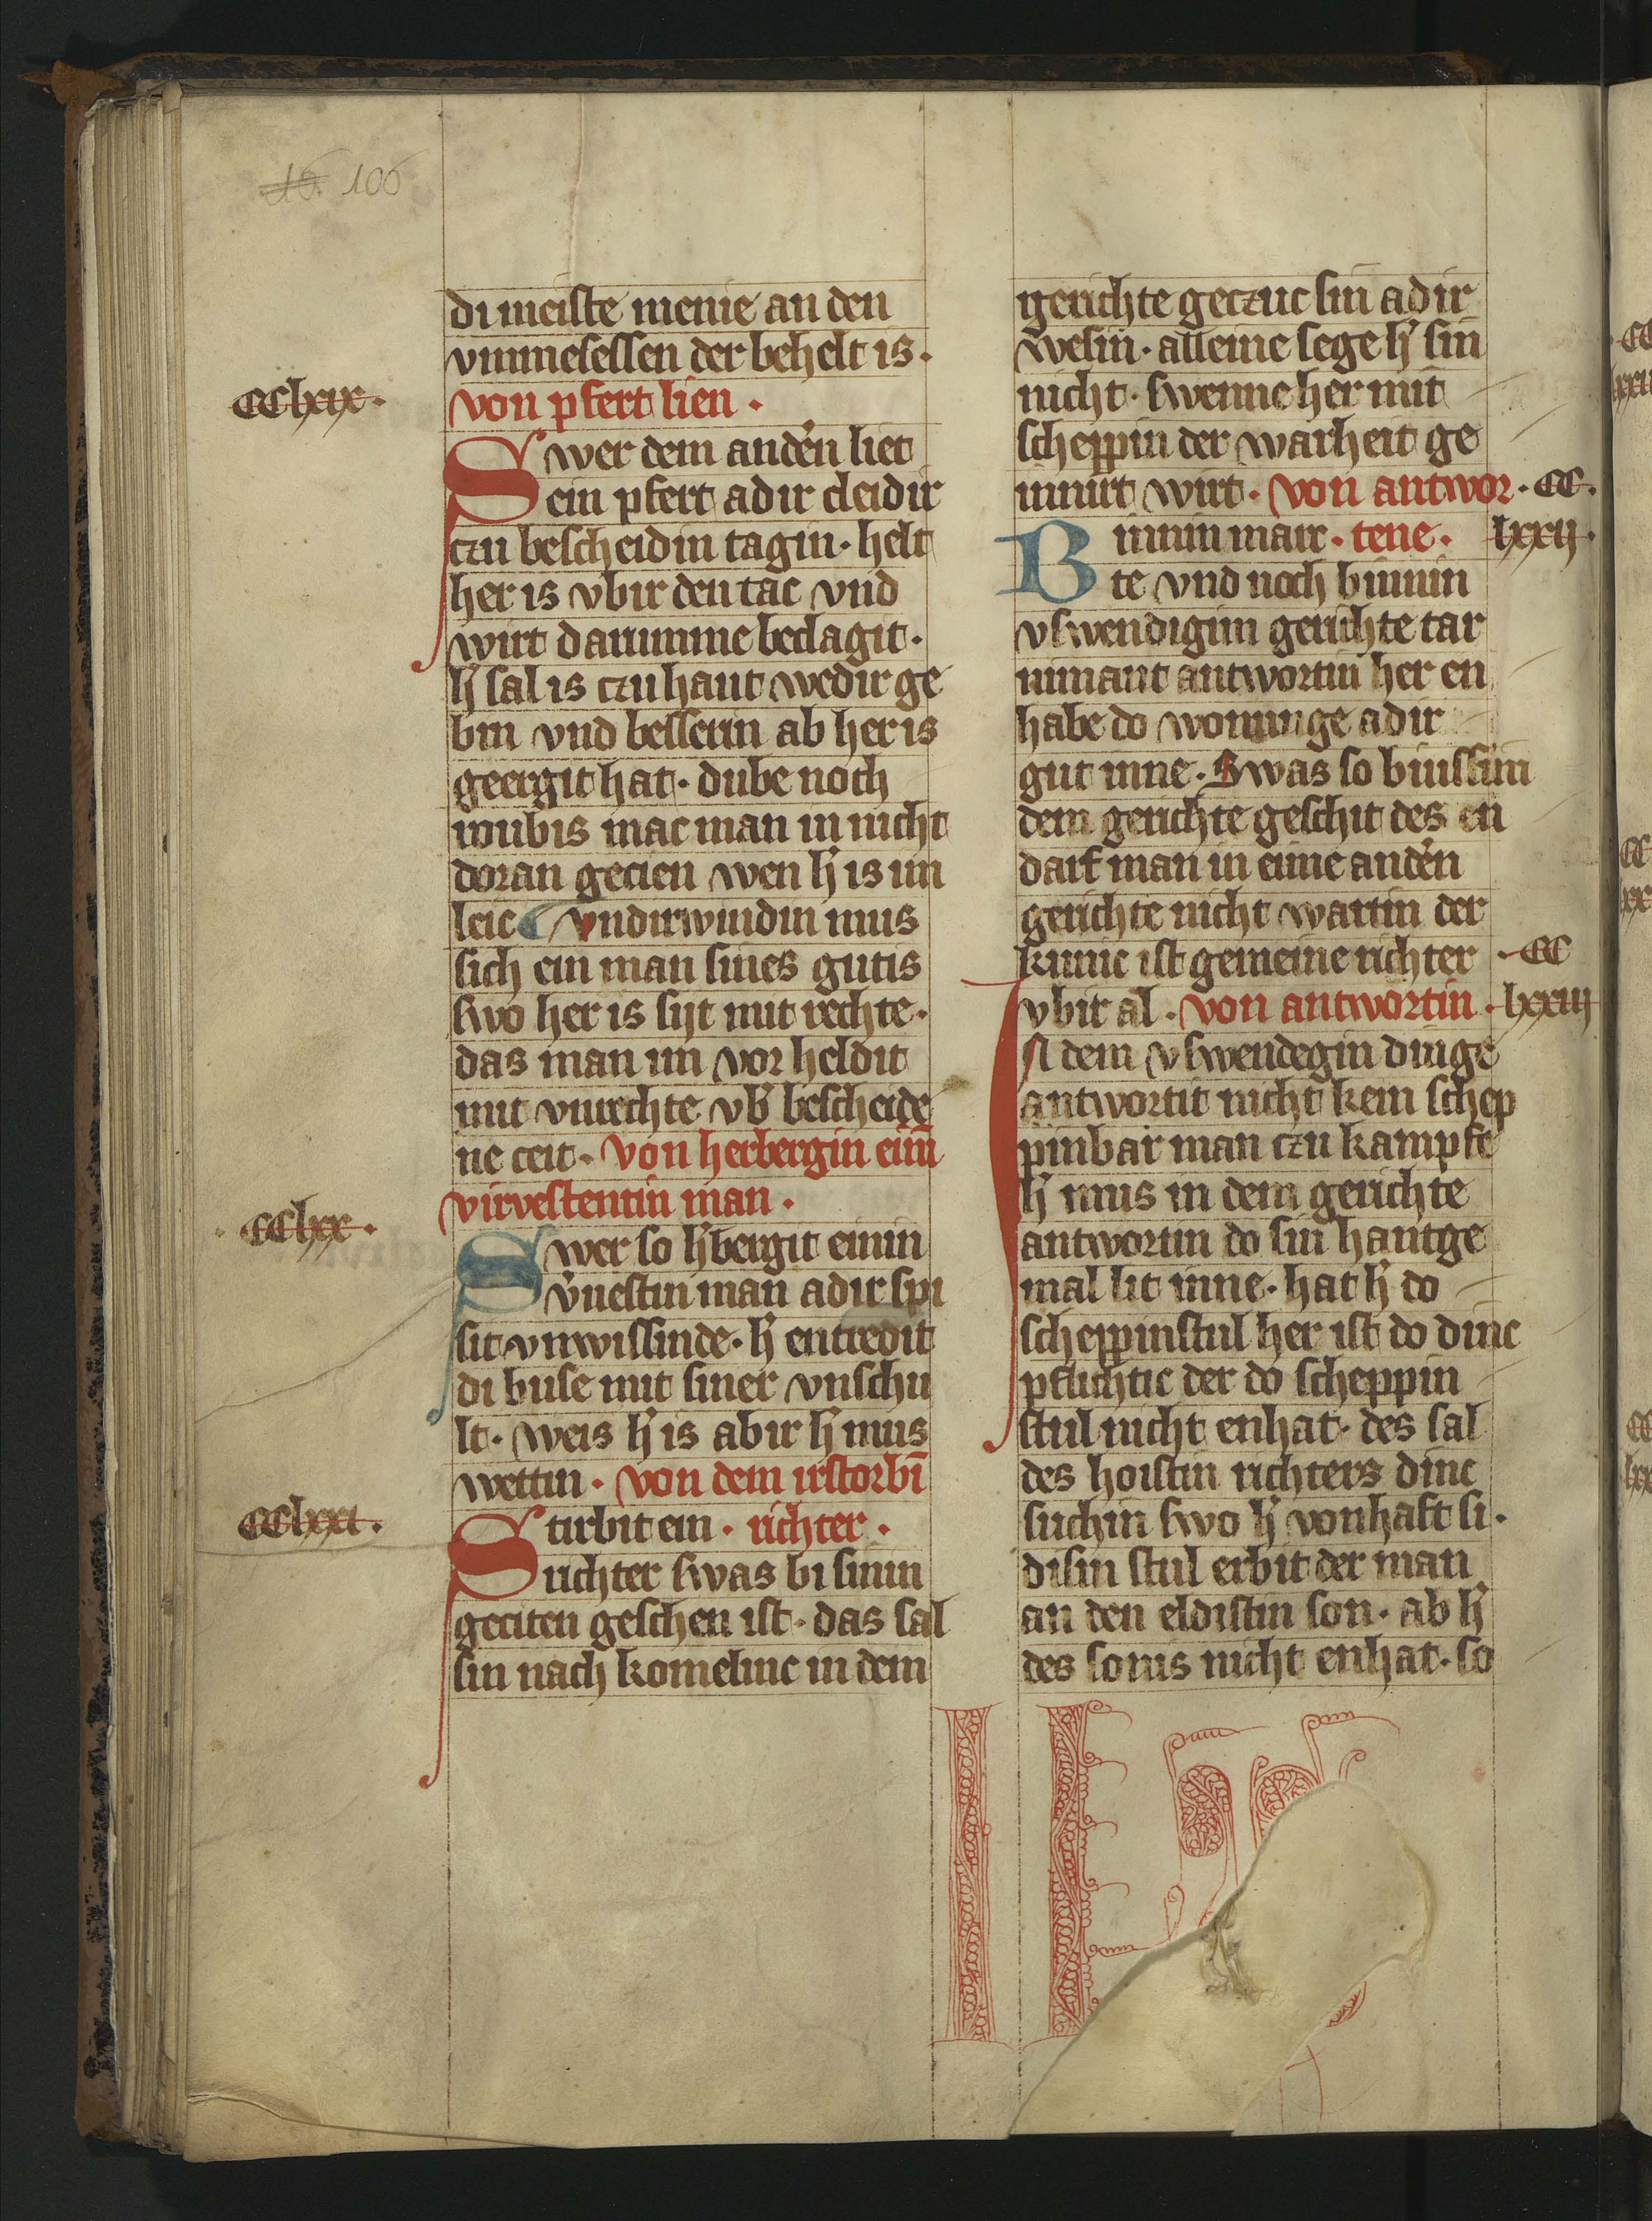 16. 106
di meiste menie an den
vmmesessen der behelt is.
CClxix.
von pfert lien.
Swer dem andẽn liet
ein pfert adir cleidir
czu bescheidin tagin. helt
her is vbir den tac vnd
wirt darumme beclagit.
h̾ sal is czu hant wedir ge
bin vnd bessern ab her is
geergit hat. dube noch
roubis mac man in nicht
doran gecien wen h̾ is im
leic vndirwindin mus
sich ein man sines gutis
swo her is syt mit rechte.
das man im vor heldit
mit vnrechte vb̾ bescheide
ne ceit. von herbergin einī
virvestentin man.
CClxx.
Swer so h̾bergit einin
v̾uestin man adir spi
sit vnwissinde. h̾ entredit
di buse mit siner vnschu
lt. weis h̾ is abir h̾ mus
wettin. von dem irstorbī
CClxxi.
Stirbit ein. richter.
richter swas bi sinin
geciten geschen ist. das sal
sin nach komelinc in dem
gerichte geczuc sin adir
wesin. alleine sege h̾ sin
nicht. swenne her mit
scheppin der warheit ge
innirt wirt. von antwor. CC.
Binnin marc. tene. lxxij.
te vnd noch binnin
vswendigim gerichte tar
nimant antwortin her en
habe do wonunge adir
gut inne. Swas so binssim
dem gerichte geschit des en
darf man in eime andẽn
gerichte nicht wartin der
kunic ist gemeine richter .CC
vbir al. von antwortin. lxxiij
In dem vswendegin dinge
antwortit nicht kein schep
pinbar man czu kampfe
h̾ mus in dem gerichte
antwortin do sin hantge
mal lit inne. hat h̾ do
scheppinstul her ist do dinc
pflichtic der do scheppin
stul nicht enhat. des sal
des hoistin richters dinc
suchin swo h̾ vonhaft si.
disin stul erbit der man
an den eldistin son. ab h̾
des sonis nicht enhat. so